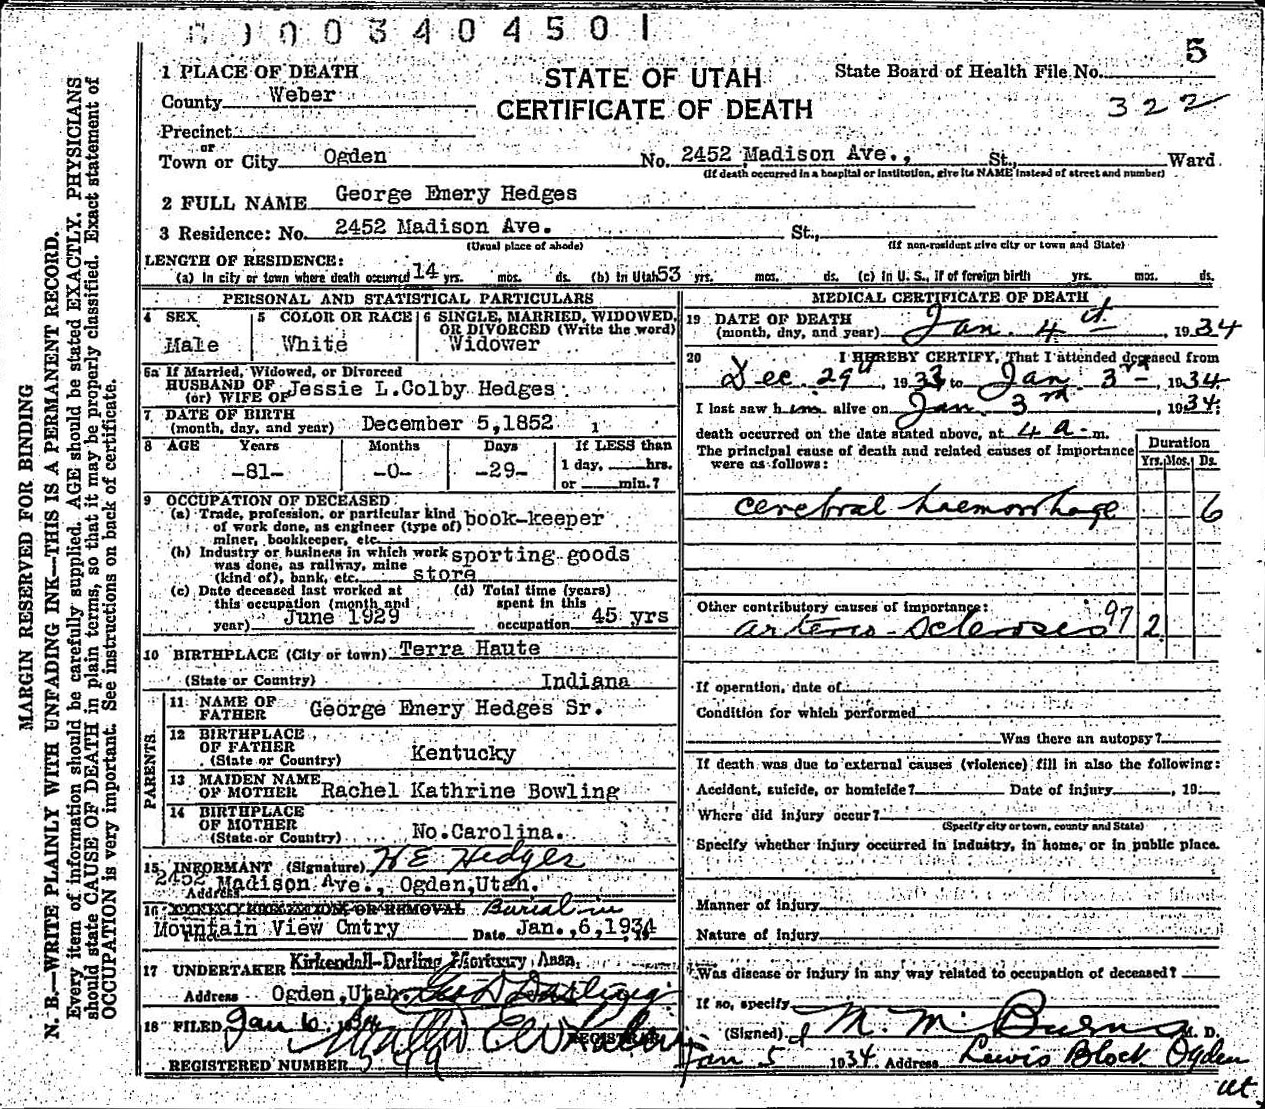 0003404501
5
1 PLACE OF DEATH
STATE OF UTAH
State Board of Health File No.
County Weber
CERTIFICATE OF DEATH
322
Precinct
or
Town or City Ogden No. 2452 Madison Ave., St., Ward
(If death occurred in a hospital or institution, give its NAME instead of street and number)
2 FULL NAME George Emery Hedges
3 Residence: No. 2452 Madison Ave. St.,
(Usual place of abode) (If non-resident give city or town and State)
LENGTH OF RESIDENCE:
(a) In city or town where death occurred 14 yrs. mos. ds. (b) In Utah 53 yrs. mos. ds. (c) In U. S., if of foreign birth yrs. mos. ds.
PERSONAL AND STATISTICAL PARTICULARS
4 SEX
Male
5 COLOR OR RACE
White
6 SINGLE, MARRIED, WIDOWED,
OR DIVORCED (Write the word)
Widower
5a If Married, Widowed, or Divorced
HUSBAND OF Jessie L.Colby Hedges
(or) WIFE OF
7 DATE OF BIRTH
(month, day, and year) December 5,1852
8 AGE Years Months Days If LESS than
-81- -0- -29- 1 day, hrs.
or min.?
9 OCCUPATION OF DECEASED
(a) Trade, profession, or particular kind
of work done, as engineer (type of) book-keeper
miner, bookkeeper, etc.
(b) Industry or business in which work sporting goods
was done, as railway, mine
(kind of), bank, etc. store
(c) Date deceased last worked at
this occupation (month and
year) June 1929
(d) Total time (years)
spent in this
occupation 45 yrs
10 BIRTHPLACE (City or town) Terra Haute
(State or Country) Indiana
PARENTS.
11 NAME OF
FATHER George Emery Hedges Sr.
12 BIRTHPLACE
OF FATHER
(State or Country) Kentucky
13 MAIDEN NAME
OF MOTHER Rachel Kathrine Bowling
14 BIRTHPLACE
OF MOTHER
(State or Country) No.Carolina.
15 INFORMANT (Signature) H E Hedges
2452 Madison Ave., Ogden,Utah.
Address
16 BURIAL, CREMATION OR REMOVAL Burial in
Mountain View Cmtry Date Jan.,6,1934
Place
17 UNDERTAKER Kirkendall-Darling Mortuary Assn.
Address Ogden,Utah. Geo D Darling
18 FILED Jan 6, 1934
REGISTRAR
REGISTERED NUMBER
MEDICAL CERTIFICATE OF DEATH
19 DATE OF DEATH
(month, day, and year) Jan. 4th, 1934
20 I HEREBY CERTIFY, That I attended deceased from
Dec. 29th, 1933 to Jan. 3rd, 1934
I last saw him alive on Jan. 3rd, 1934.
death occurred on the date stated above, at 4 a. m.
The principal cause of death and related causes of importance
were as follows:
Duration
Yrs. Mos. Ds.
cerebral haemorrhage 6
Other contributory causes of importance:
arterio-sclerosis 97 2
If operation, date of
Condition for which performed
Was there an autopsy?
If death was due to external causes (violence) fill in also the following:
Accident, suicide, or homicide? Date of injury , 19
Where did injury occur?
(Specify city or town, county and State)
Specify whether injury occurred in industry, in home, or in public place.
Manner of injury
Nature of injury
Was disease or injury in any way related to occupation of deceased?
If so, specify
(Signed) M. M. Burns M. D.
Jan 5 1934 Address Lewis Block Ogden
Ut.
MARGIN RESERVED FOR BINDING
N. B.—WRITE PLAINLY WITH UNFADING INK—THIS IS A PERMANENT RECORD.
Every item of information should be carefully supplied. AGE should be stated EXACTLY. PHYSICIANS
should state CAUSE OF DEATH in plain terms, so that it may be properly classified. Exact statement of
OCCUPATION is very important. See instructions on back of certificate.